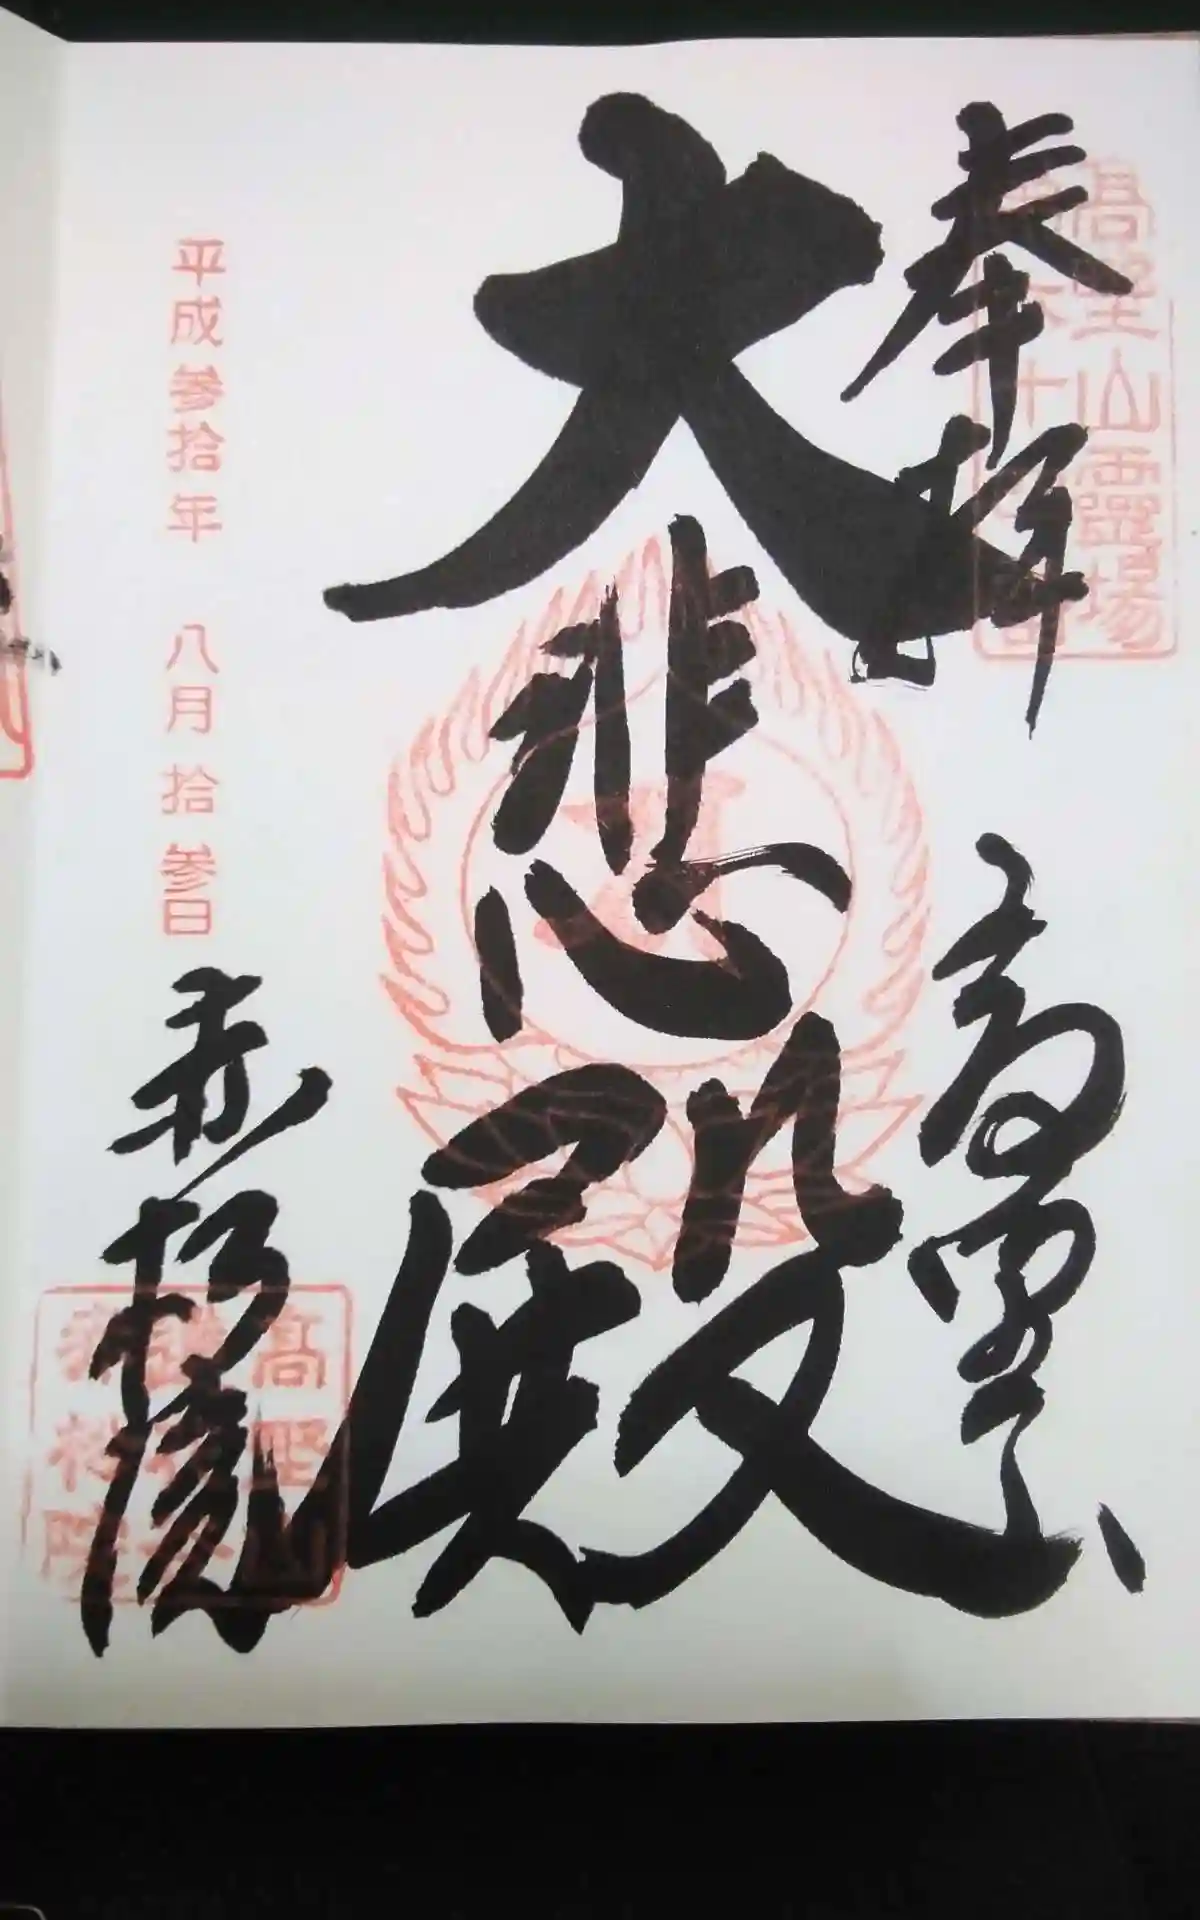 奉拝
高野山
大悲殿
平成参拾年 八月拾参日
赤松院
高野山
赤松院